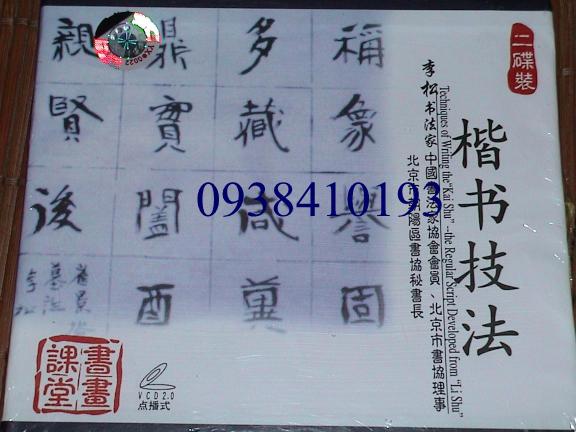 二碟裝
楷书技法
Techniques of Writing the "Kai Shu" -the Regular Script Developed from "Li Shu"
李松书法家 中國書法家協會會員、北京市書協理事
北京市朝陽區書協秘書長
稱象譽固
多藏咸冀
鼎實闔酉
親賢後
李松
0938410193
書畫
課堂
VCD2.0
点播式